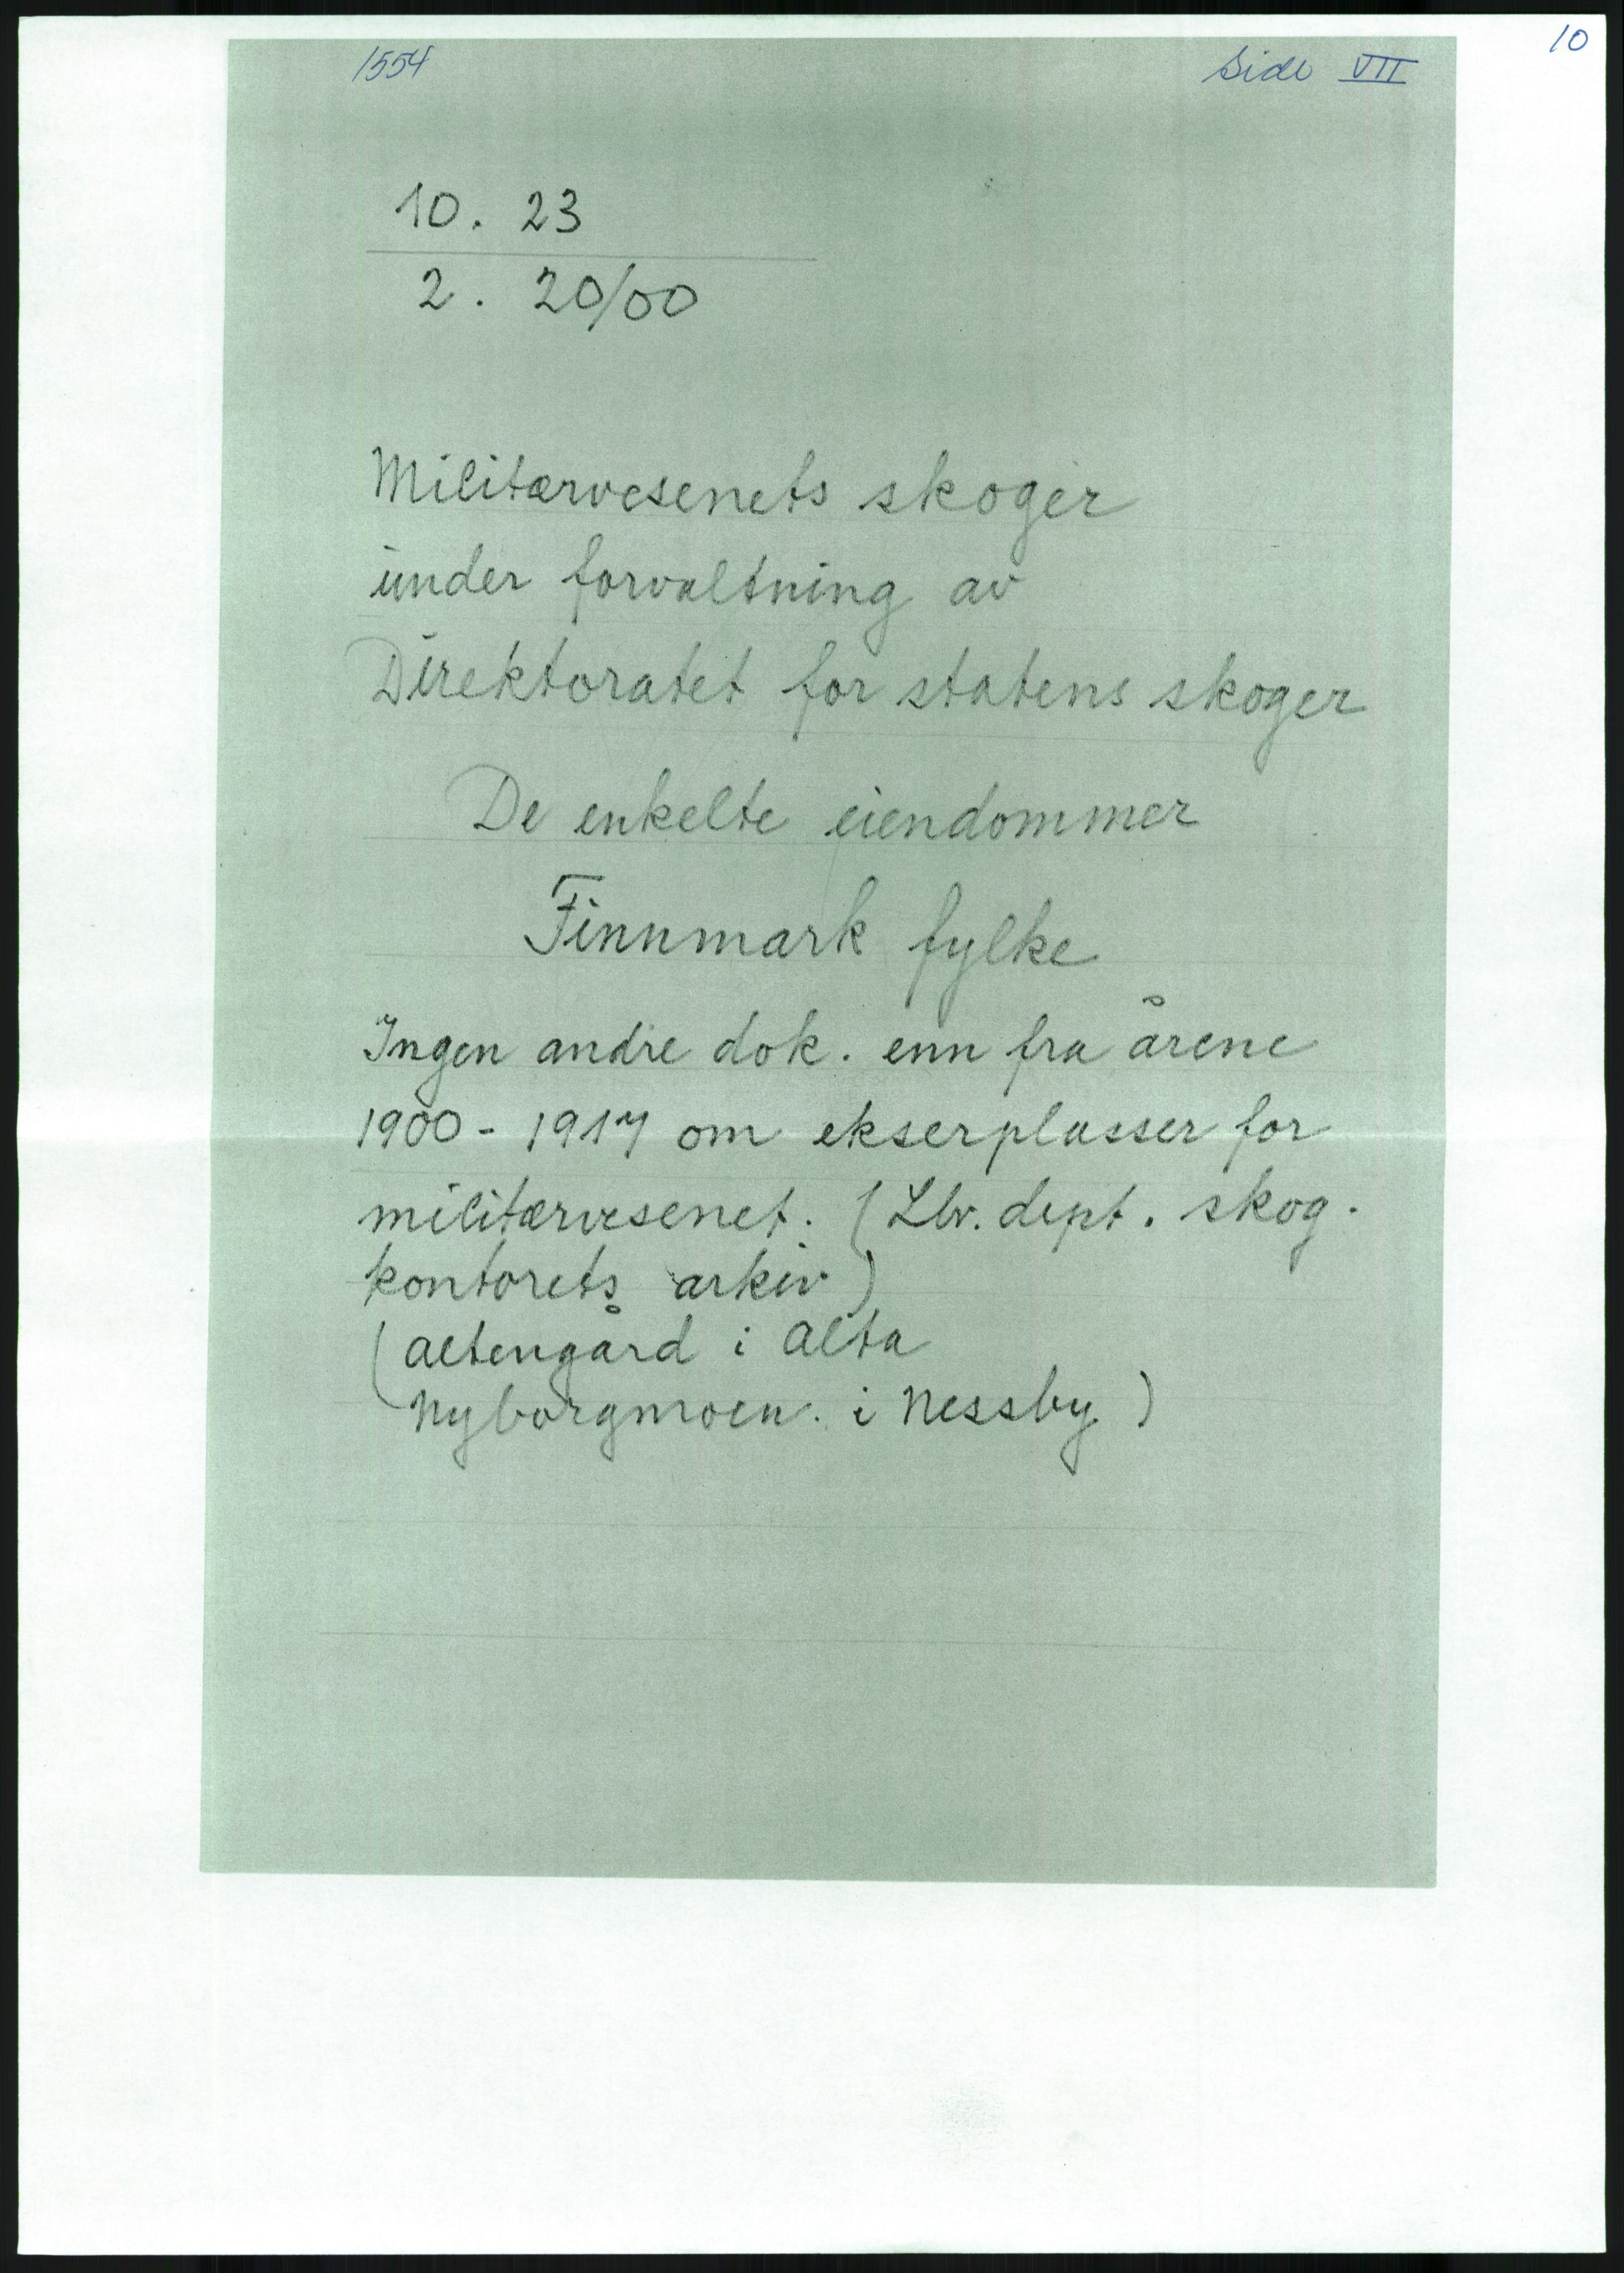 10
1554 Side VII
10. 23
2. 20/00
Militærvesenets skoger
under forvaltning av
Direktoratet for statens skoger
De enkelte eiendommer
Finnmark fylke
Ingen andre dok. enn fra årene
1900 - 1917 om ekserplasser for
militærvesenet. (Lbr. dept. skog.
kontorets arkiv)
(Altengård i Alta
Nyborgmoen. i Nessby)